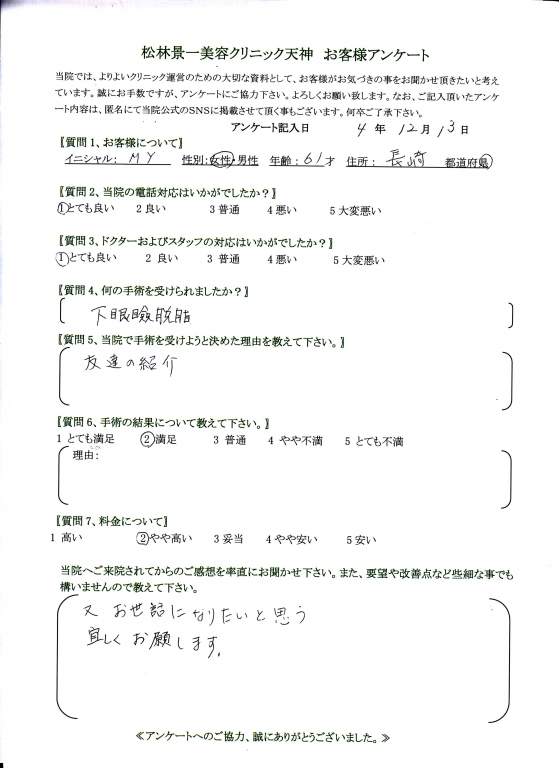 松林景一美容クリニック天神　お客様アンケート
当院では、よりよいクリニック運営のための大切な資料として、お客様がお気づきの事をお聞かせ頂きたいと考え
ています。誠にお手数ですが、アンケートにご協力下さい。よろしくお願い致します。なお、ご記入頂いたアンケ
ート内容は、匿名にて当院公式のSNSに掲載させて頂く事もございます。何卒ご了承下さい。
アンケート記入日　4 年 12 月 13 日
【質問1、お客様について】
イニシャル: MY　性別:女性・男性　年齢: 61才　住所: 長崎　都道府県
【質問2、当院の電話対応はいかがでしたか?】
1とても良い　2良い　3普通　4悪い　5大変悪い
【質問3、ドクターおよびスタッフの対応はいかがでしたか?】
1とても良い　2 良い　3 普通　4悪い　5大変悪い
【質問4、何の手術を受けられましたか?】
下眼瞼脱脂
【質問5、当院で手術を受けようと決めた理由を教えて下さい。】
友達の紹介
【質問6、手術の結果について教えて下さい。】
1 とても満足　2満足　3 普通　4 やや不満　5 とても不満
理由:
【質問7、料金について】
1 高い　2やや高い　3妥当　4やや安い　5安い
当院へご来院されてからのご感想を率直にお聞かせ下さい。また、要望や改善点など些細な事でも
構いませんので教えて下さい。
又 お世話になりたいと思う
宜しく お願します。
≪アンケートへのご協力、誠にありがとうございました。≫